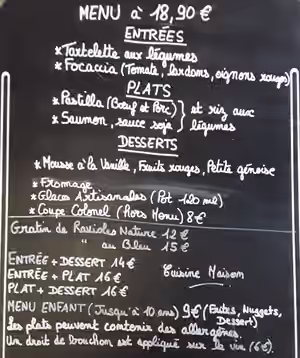 MENU à 18,90 €
ENTRÉES
* Tartelette aux légumes
* Focaccia (Tomate, lardons, oignons rouges)
PLATS
* Pastilla (Bœuf et Porc) } et riz aux
* Saumon, sauce soja } légumes
DESSERTS
* Mousse à la Vanille, Fruits rouges, Petite génoise
* Fromage
* Glaces Artisanales (Pot 120 ml)
* Coupe Colonel (Hors Menu) 8€
Gratin de Ravioles Nature 12 €
" au Bleu 15 €
ENTRÉE + DESSERT 14€
ENTRÉE + PLAT 16 € Cuisine Maison
PLAT + DESSERT 16 €
MENU ENFANT (Jusqu'à 10 ans) 9€ (Frites, Nuggets,
Dessert)
Les plats peuvent contenir des allergènes.
Un droit de bouchon est appliqué sur le vin (6€).